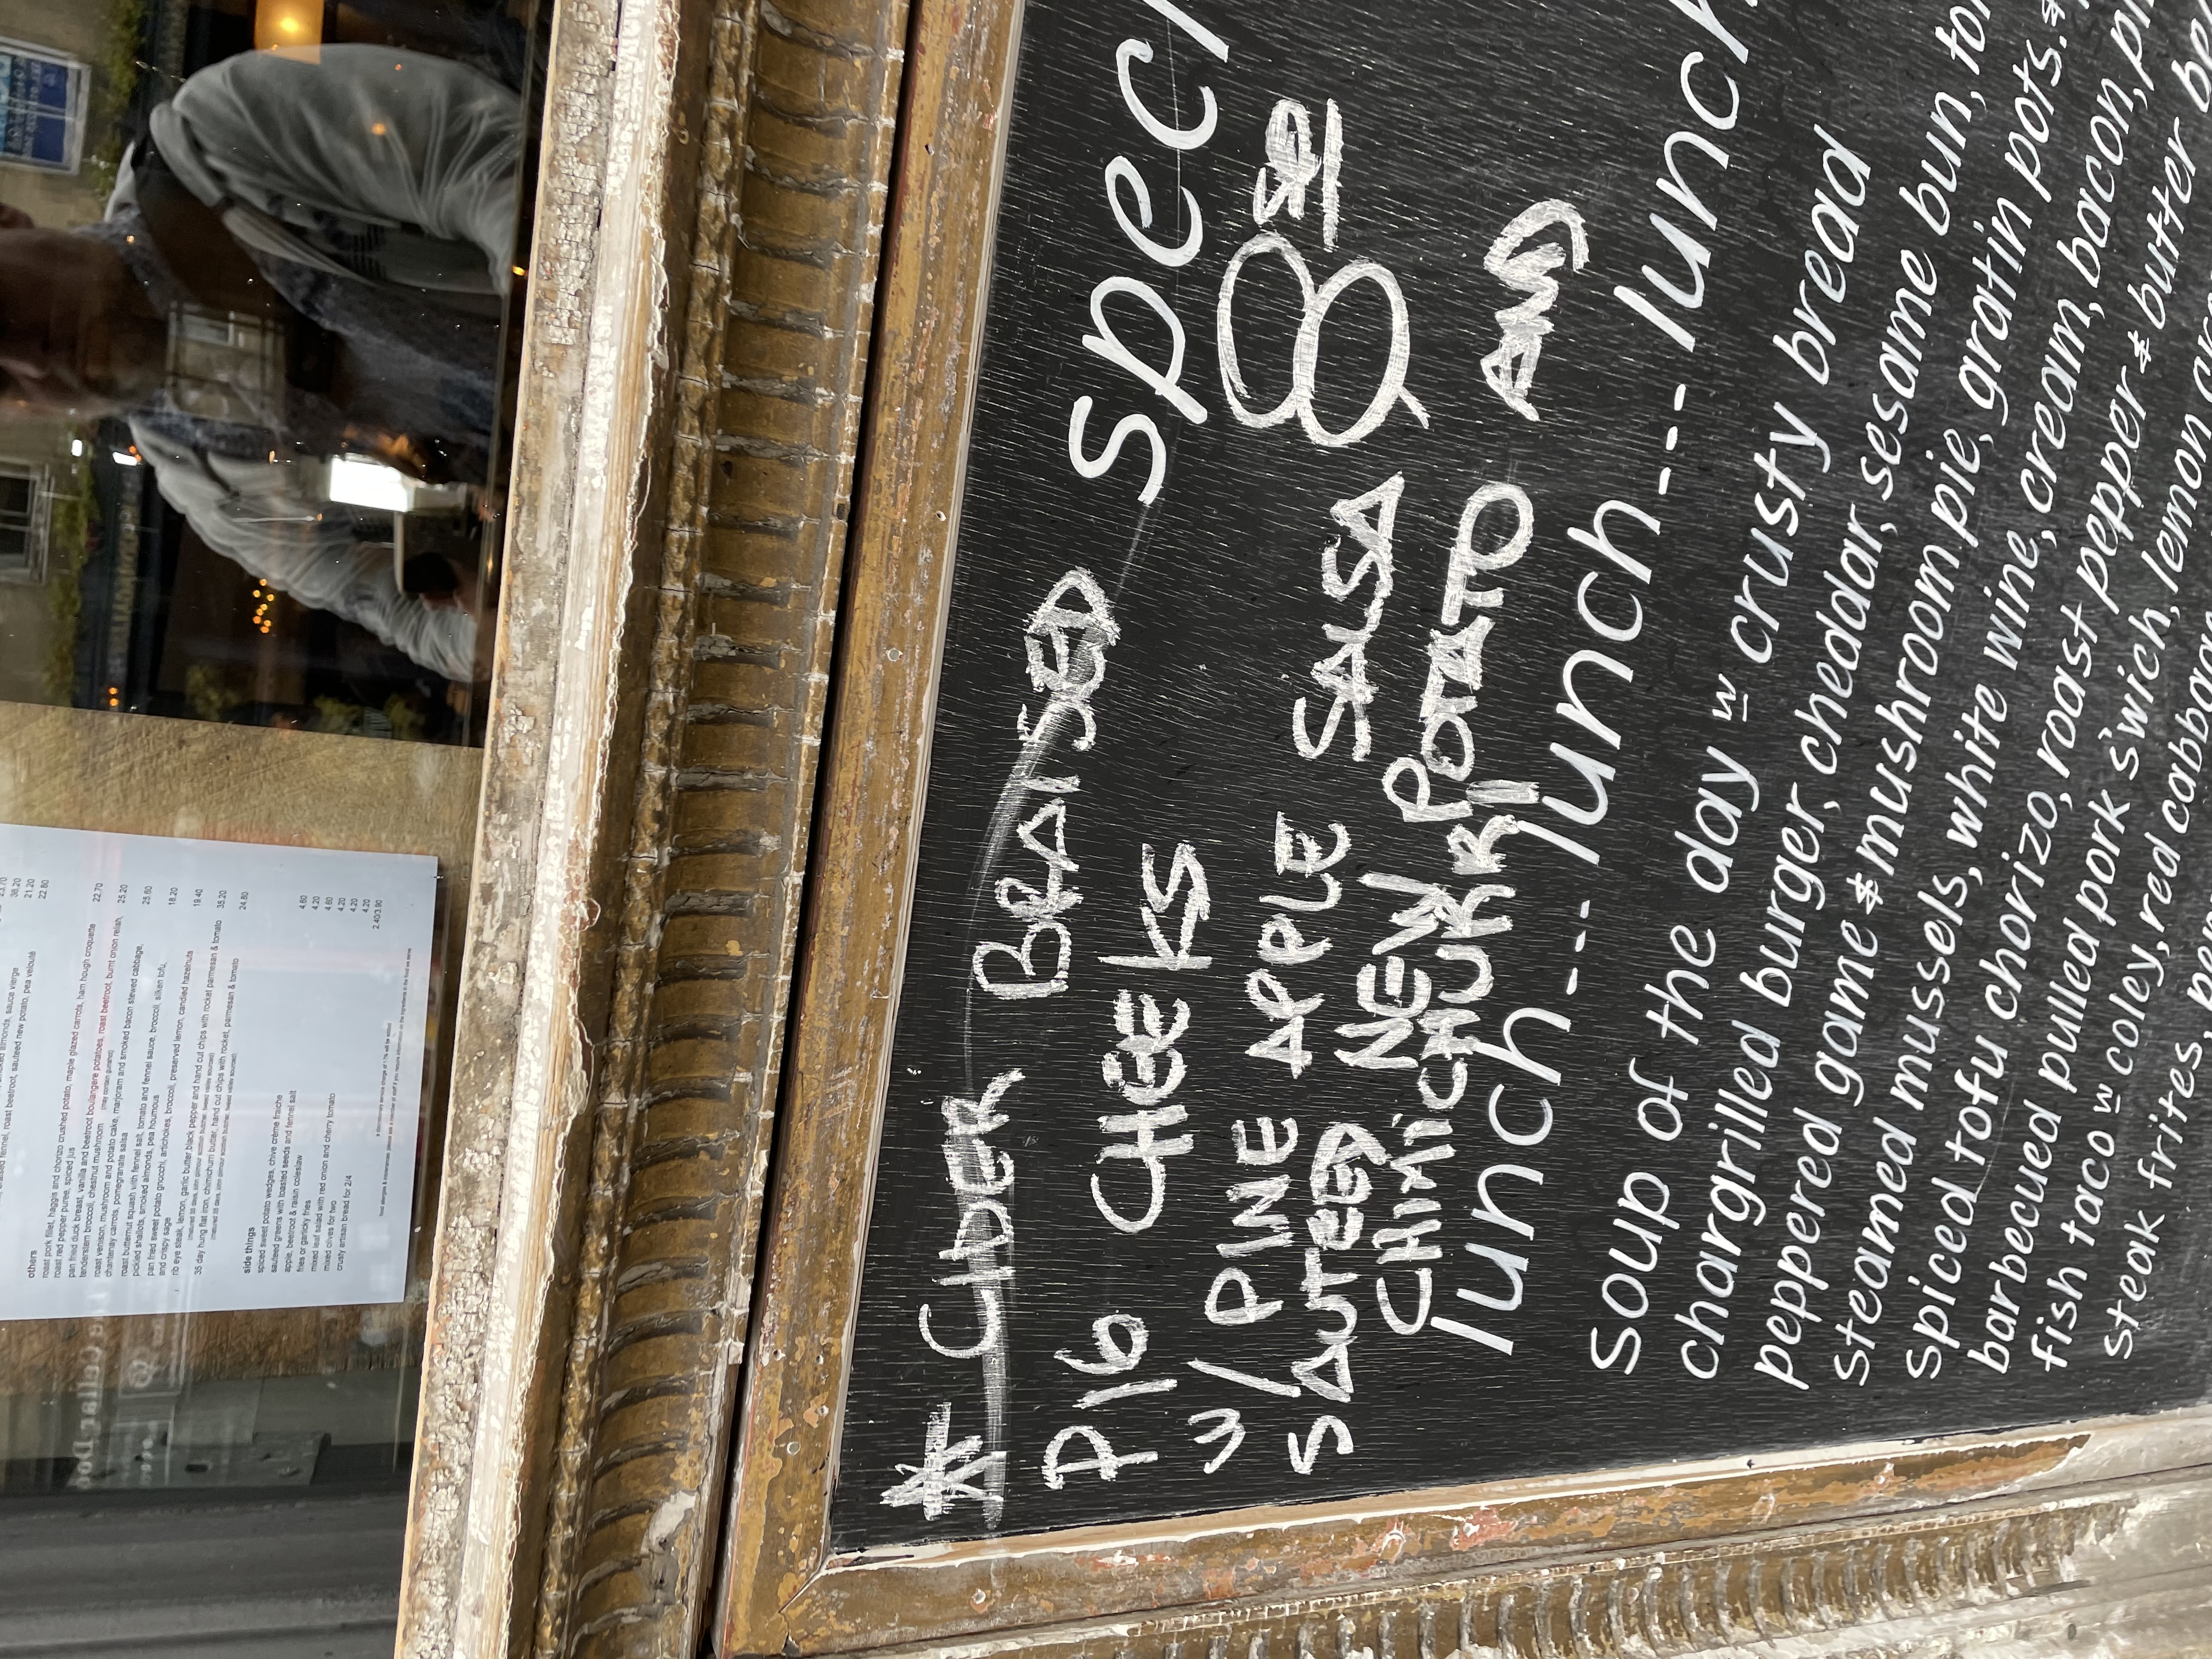 speci
* CIDER BRAISED
PIG CHEEKS
8 50
W/ PINE APPLE SALSA
SAUTEED NEW POTATO AND
CHIMICHURRI
lunch---lunch---lunch---lunch
soup of the day w crusty bread
chargrilled burger, cheddar, sesame bun, to
peppered game & mushroom pie, gratin pots. &
steamed mussels, white wine, cream, bacon,
spiced tofu chorizo, roast pepper & butter
barbecued pulled pork s'wich, lemon
fish taco w coley, red cabbage
steak frites,
21.20
22.80
others
roast pork fillet, haggis and chorizo crushed potato, maple glazed carrots, ham hough croquette
roast red pepper puree, spiced jus 22.70
pan fried duck breast, vanilla and beetroot boulangere potatoes, roast beetroot, burnt onion relish,
tenderstem broccoli, chestnut mushroom 25.20
roast venison, mushroom and potato cake, marjoram and smoked bacon stewed cabbage,
chantenay carrots, pomegranate salsa 25.60
roast butternut squash with fennel salt, tomato and fennel sauce, broccoli, silken tofu,
pickled shallots, smoked almonds, pea houmous 18.20
pan fried sweet potato gnocchi, artichokes, broccoli, preserved lemon, candied hazelnuts
and crispy sage 19.40
rib eye steak, lemon, garlic butter, black pepper and hand cut chips with rocket parmesan & tomato 35.20
35 day hung flat iron, chimichurri butter, hand cut chips with rocket, parmesan & tomato 24.80
side things
spiced sweet potato wedges, chive crème fraiche 4.60
sauteed greens with toasted seeds and fennel salt 4.20
apple, beetroot & raisin coleslaw 4.60
fries or garlicky fries 4.20
mixed leaf salad with red onion and cherry tomato 4.20
mixed olives for two 4.20
crusty artisan bread for 2/4 2.40/3.90